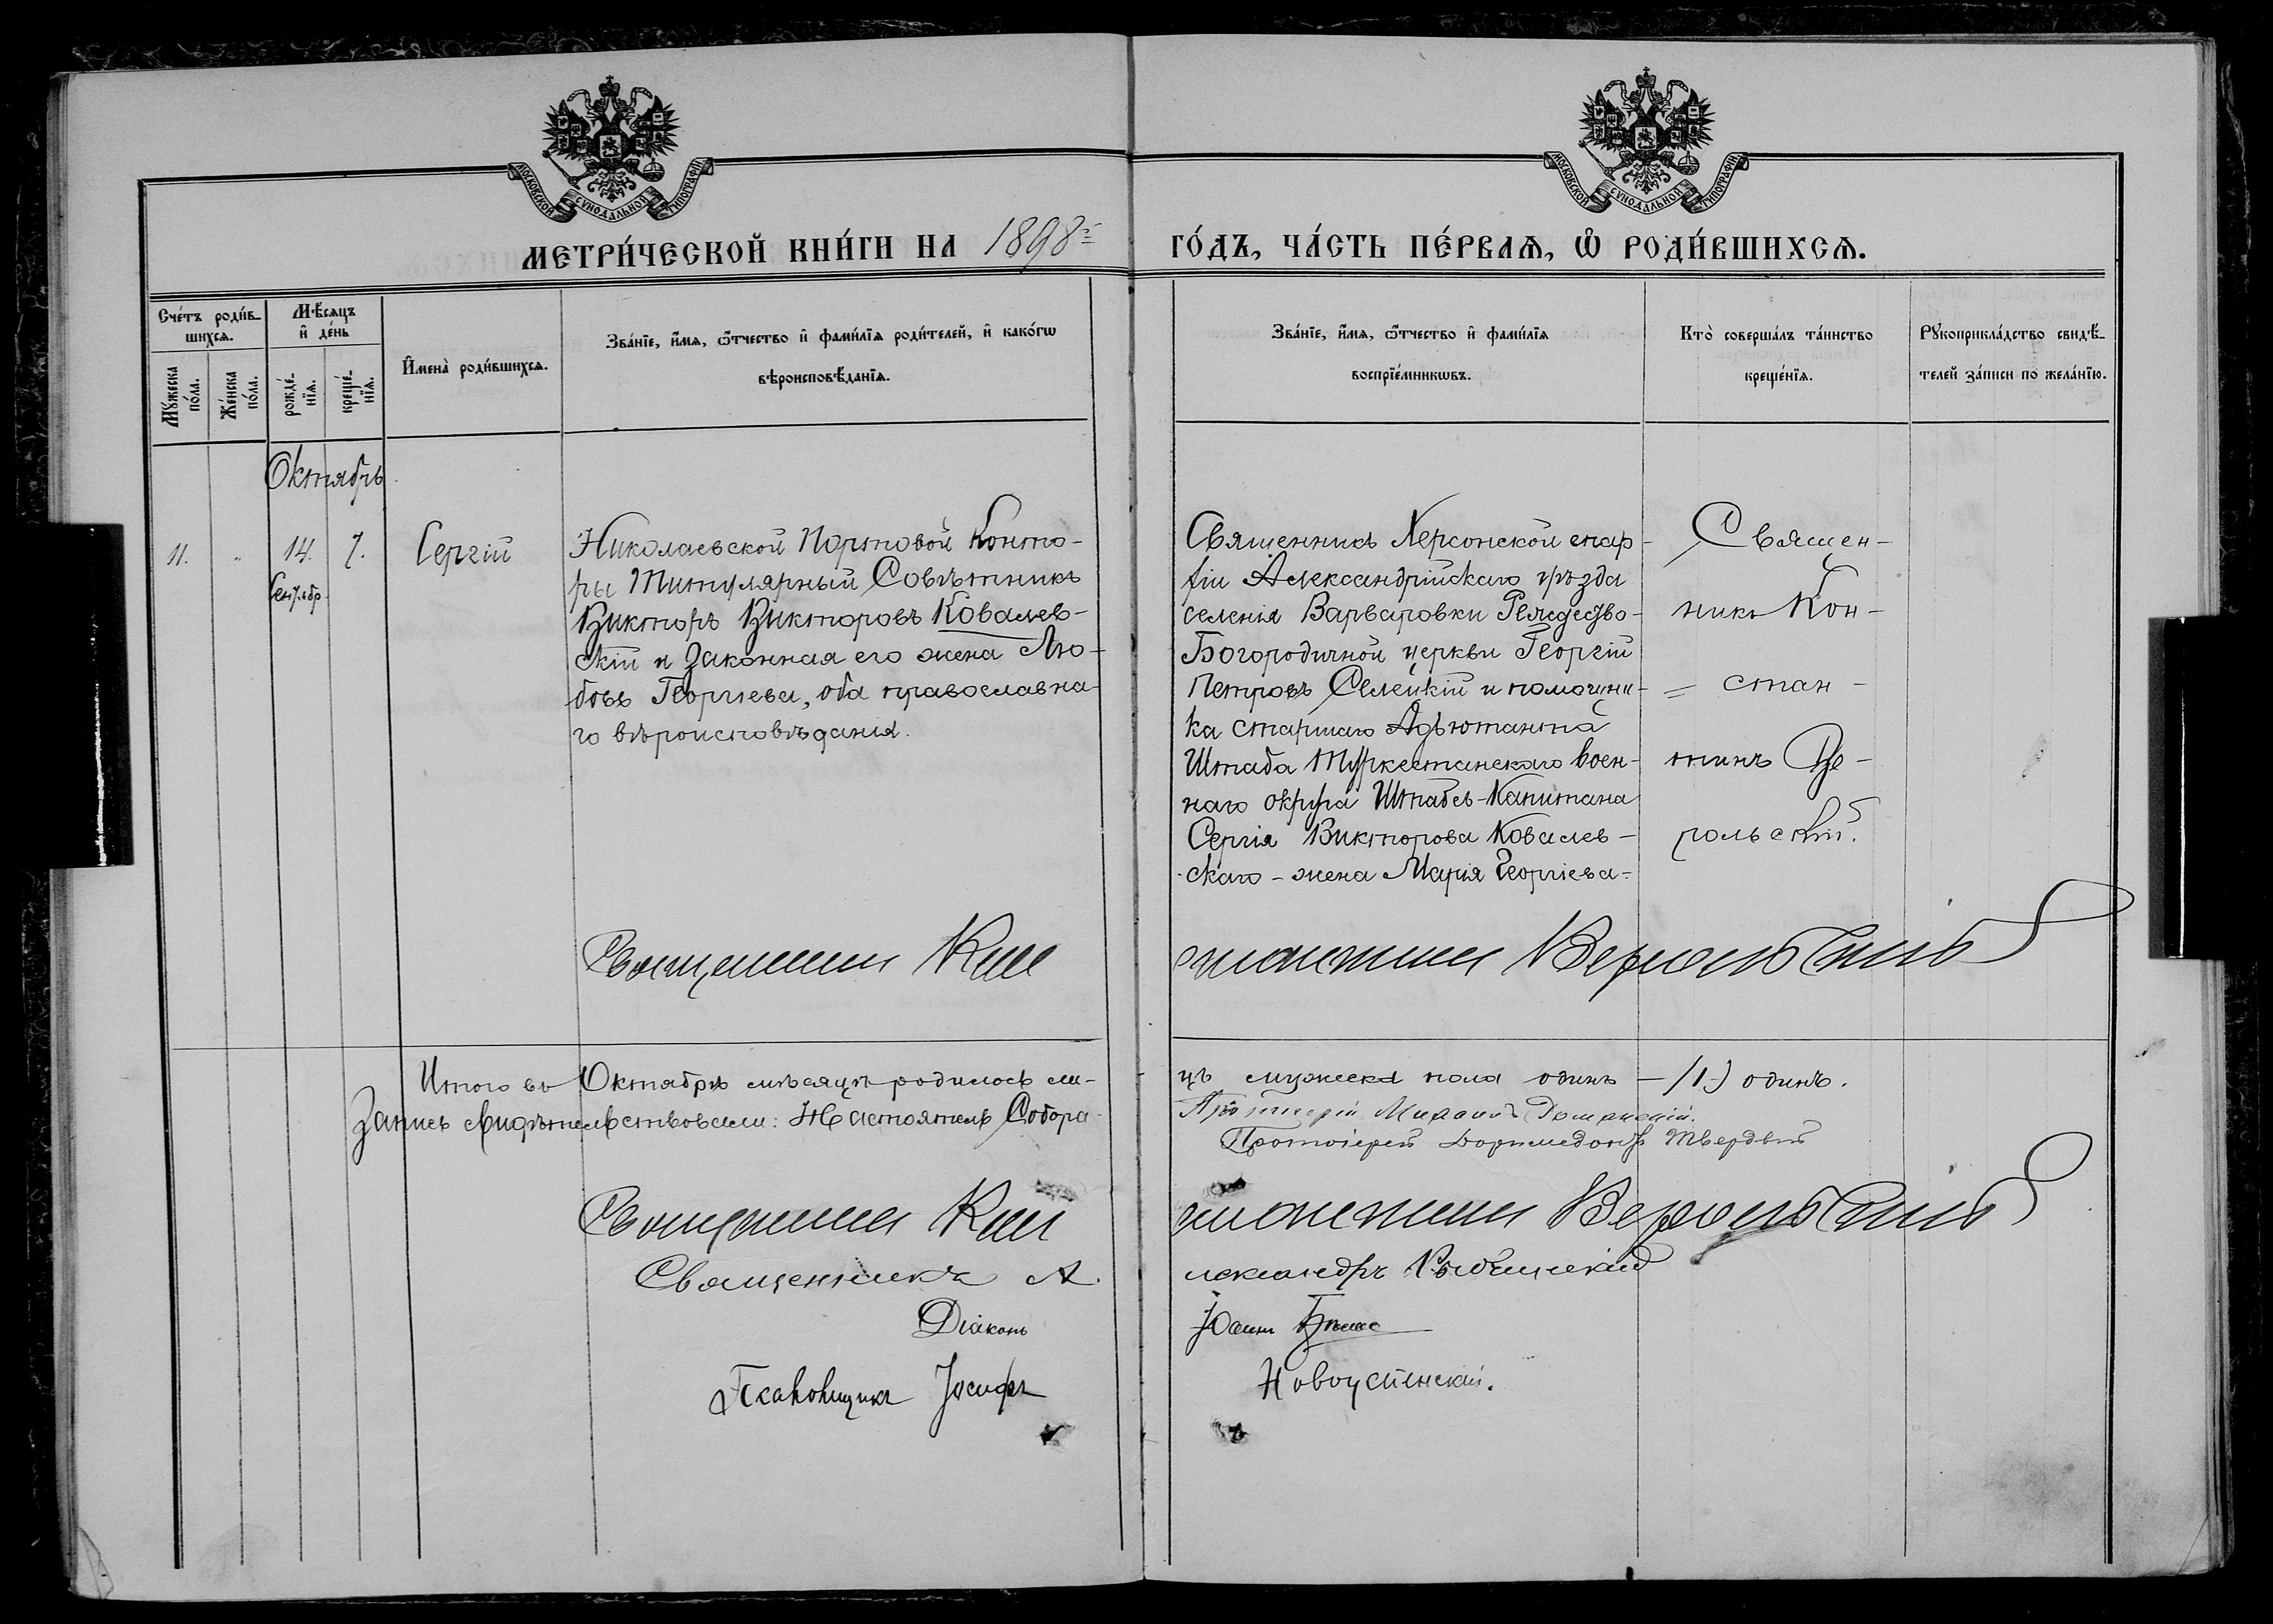 МОСКОВСКОЙ СѴНОДАЛЬНОЙ ТИПОГРАФІИ
МОСКОВСКОЙ СѴНОДАЛЬНОЙ ТИПОГРАФІИ
МЕТРИ́ЧЕСКОЙ КНИ́ГИ НА 1898й ГО́ДЪ, ЧА́СТЬ ПЕ́РВАѦ, Ѡ҆ РОДИ́ВШИХСѦ.
Сче́тъ роди́в-
шихсѧ.
Мꙋ́жеска
по́ла.
Же́нска
по́ла.
Мѣ́сѧцъ
и҆ де́нь
рожде́-
нїѧ.
креще́-
нїѧ.
И҆мена̀ роди́вшихсѧ.
Зва́нїе, и҆́мѧ, ѻ҆́тчество и҆ фами́лїѧ роди́телей, и҆ како́гѡ
вѣроисповѣ́данїѧ.
Зва́нїе, и҆́мѧ, ѻ҆́тчество и҆ фами́лїѧ
воспрїе́мникѡвъ.
Кто̀ соверша́лъ та́инство
креще́нїѧ.
Рꙋкоприкла́дство свидѣ́-
телей за́писи по жела́нїю.
Октябрь
11. " 14. 7. Сергій
Сентябр.
Николаевской Портовой Конто-
ры Титулярный Совѣтникъ
Викторъ Викторовъ Ковалев-
скій и законная его жена Лю-
бовь Георгіева, оба православна-
го вѣроисповѣданія.
Священникъ Херсонской епар-
хіи Александрійскаго уѣзда
селенія Варваровки Рождество-
Богородичной церкви Георгій
Петровъ Селецкій и помощни-
ка старшаго Адъютанта
Штаба Туркестанскаго воен-
наго округа Штабсъ-Капитана
Сергія Викторова Ковалев-
скаго - жена Марія Георгіева-
Священ-
никъ Кон-
стан-
тинъ Ве-
рольскій.
Священникъ Константинъ Верольскій
Итого въ Октябрѣ мѣсяцѣ родилось мла-
нцъ мужеска пола одинъ — /1./ одинъ.
Запись свидѣтельствовали: Настоятель Собора
Протоіерей Михаилъ
Протоіерей Доримедонтъ Твердый
Священникъ Константинъ Верольскій
Священникъ Александръ
Діаконъ Іоаннъ
Псаломщикъ Іосифъ Новоуспенскій.